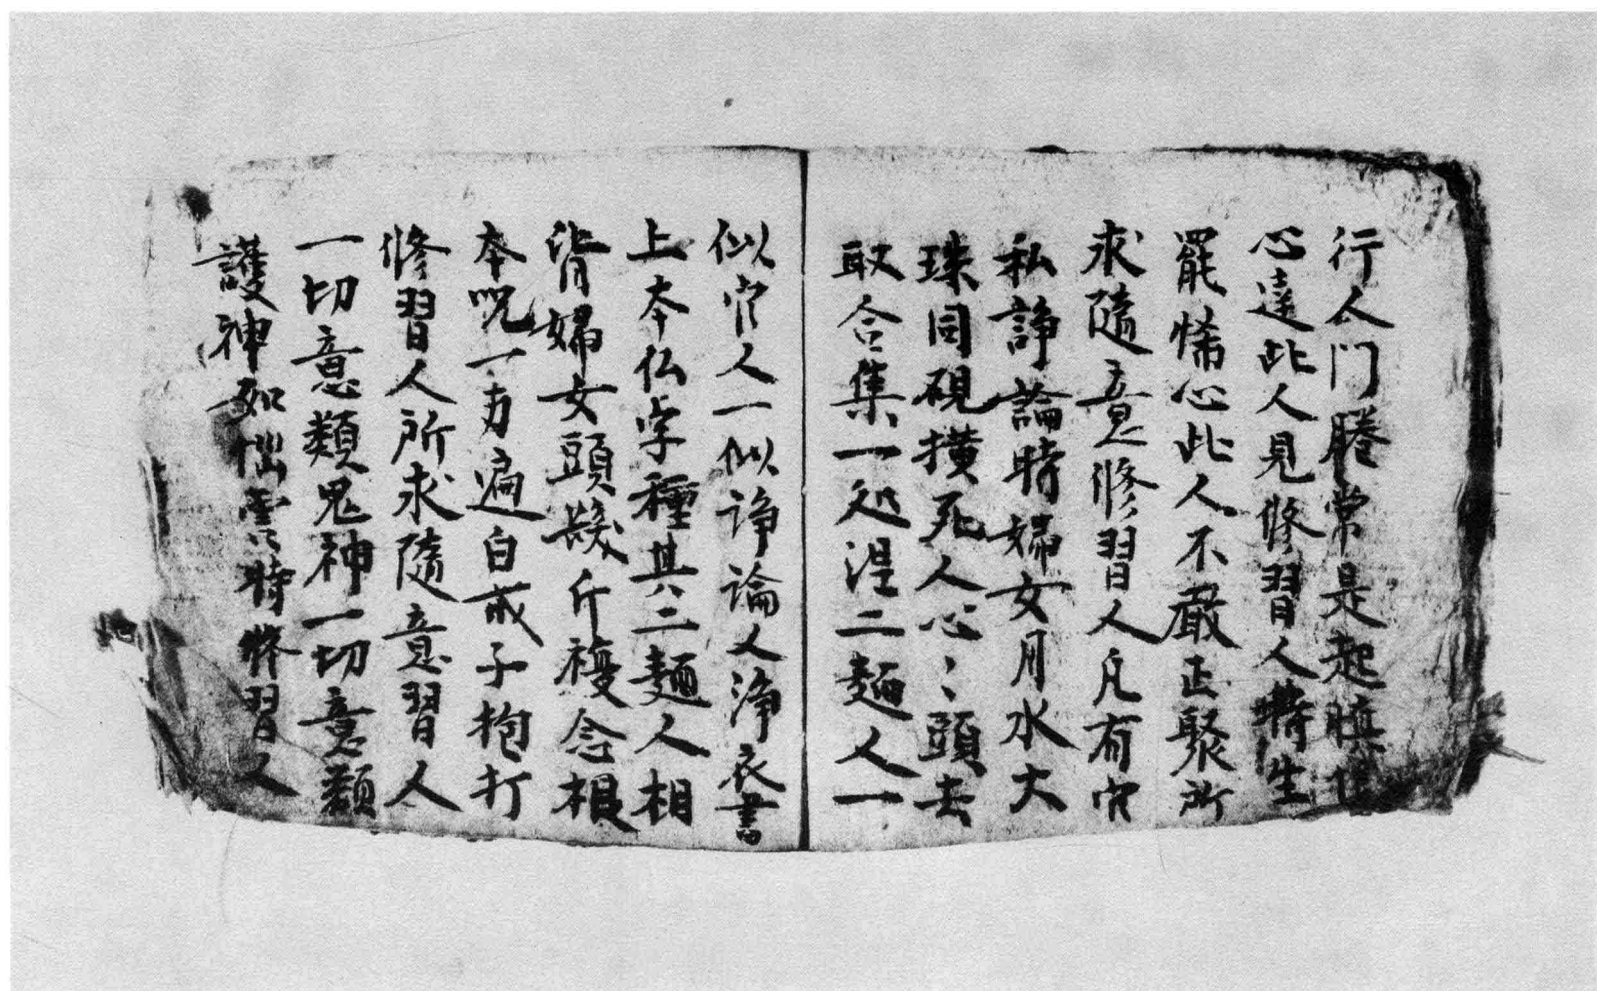 行人門賸常是起瞋恨
心達此人見修習人轉生
罷悕心此人不嚴正聚所
求隨意修習人凡有官
私諍論時婦女月水大
珠同硯橫死人心〻頭去
取合集一処湼二麵人一
似官人一似諍論人淨衣書
上本仏字種其二麵人相
背婦女頭髮斤𮖐念根
本呪一百遍白芥子抱打
修習人所求隨意習人
一切意類鬼神一切意類
護神如雲時修習人